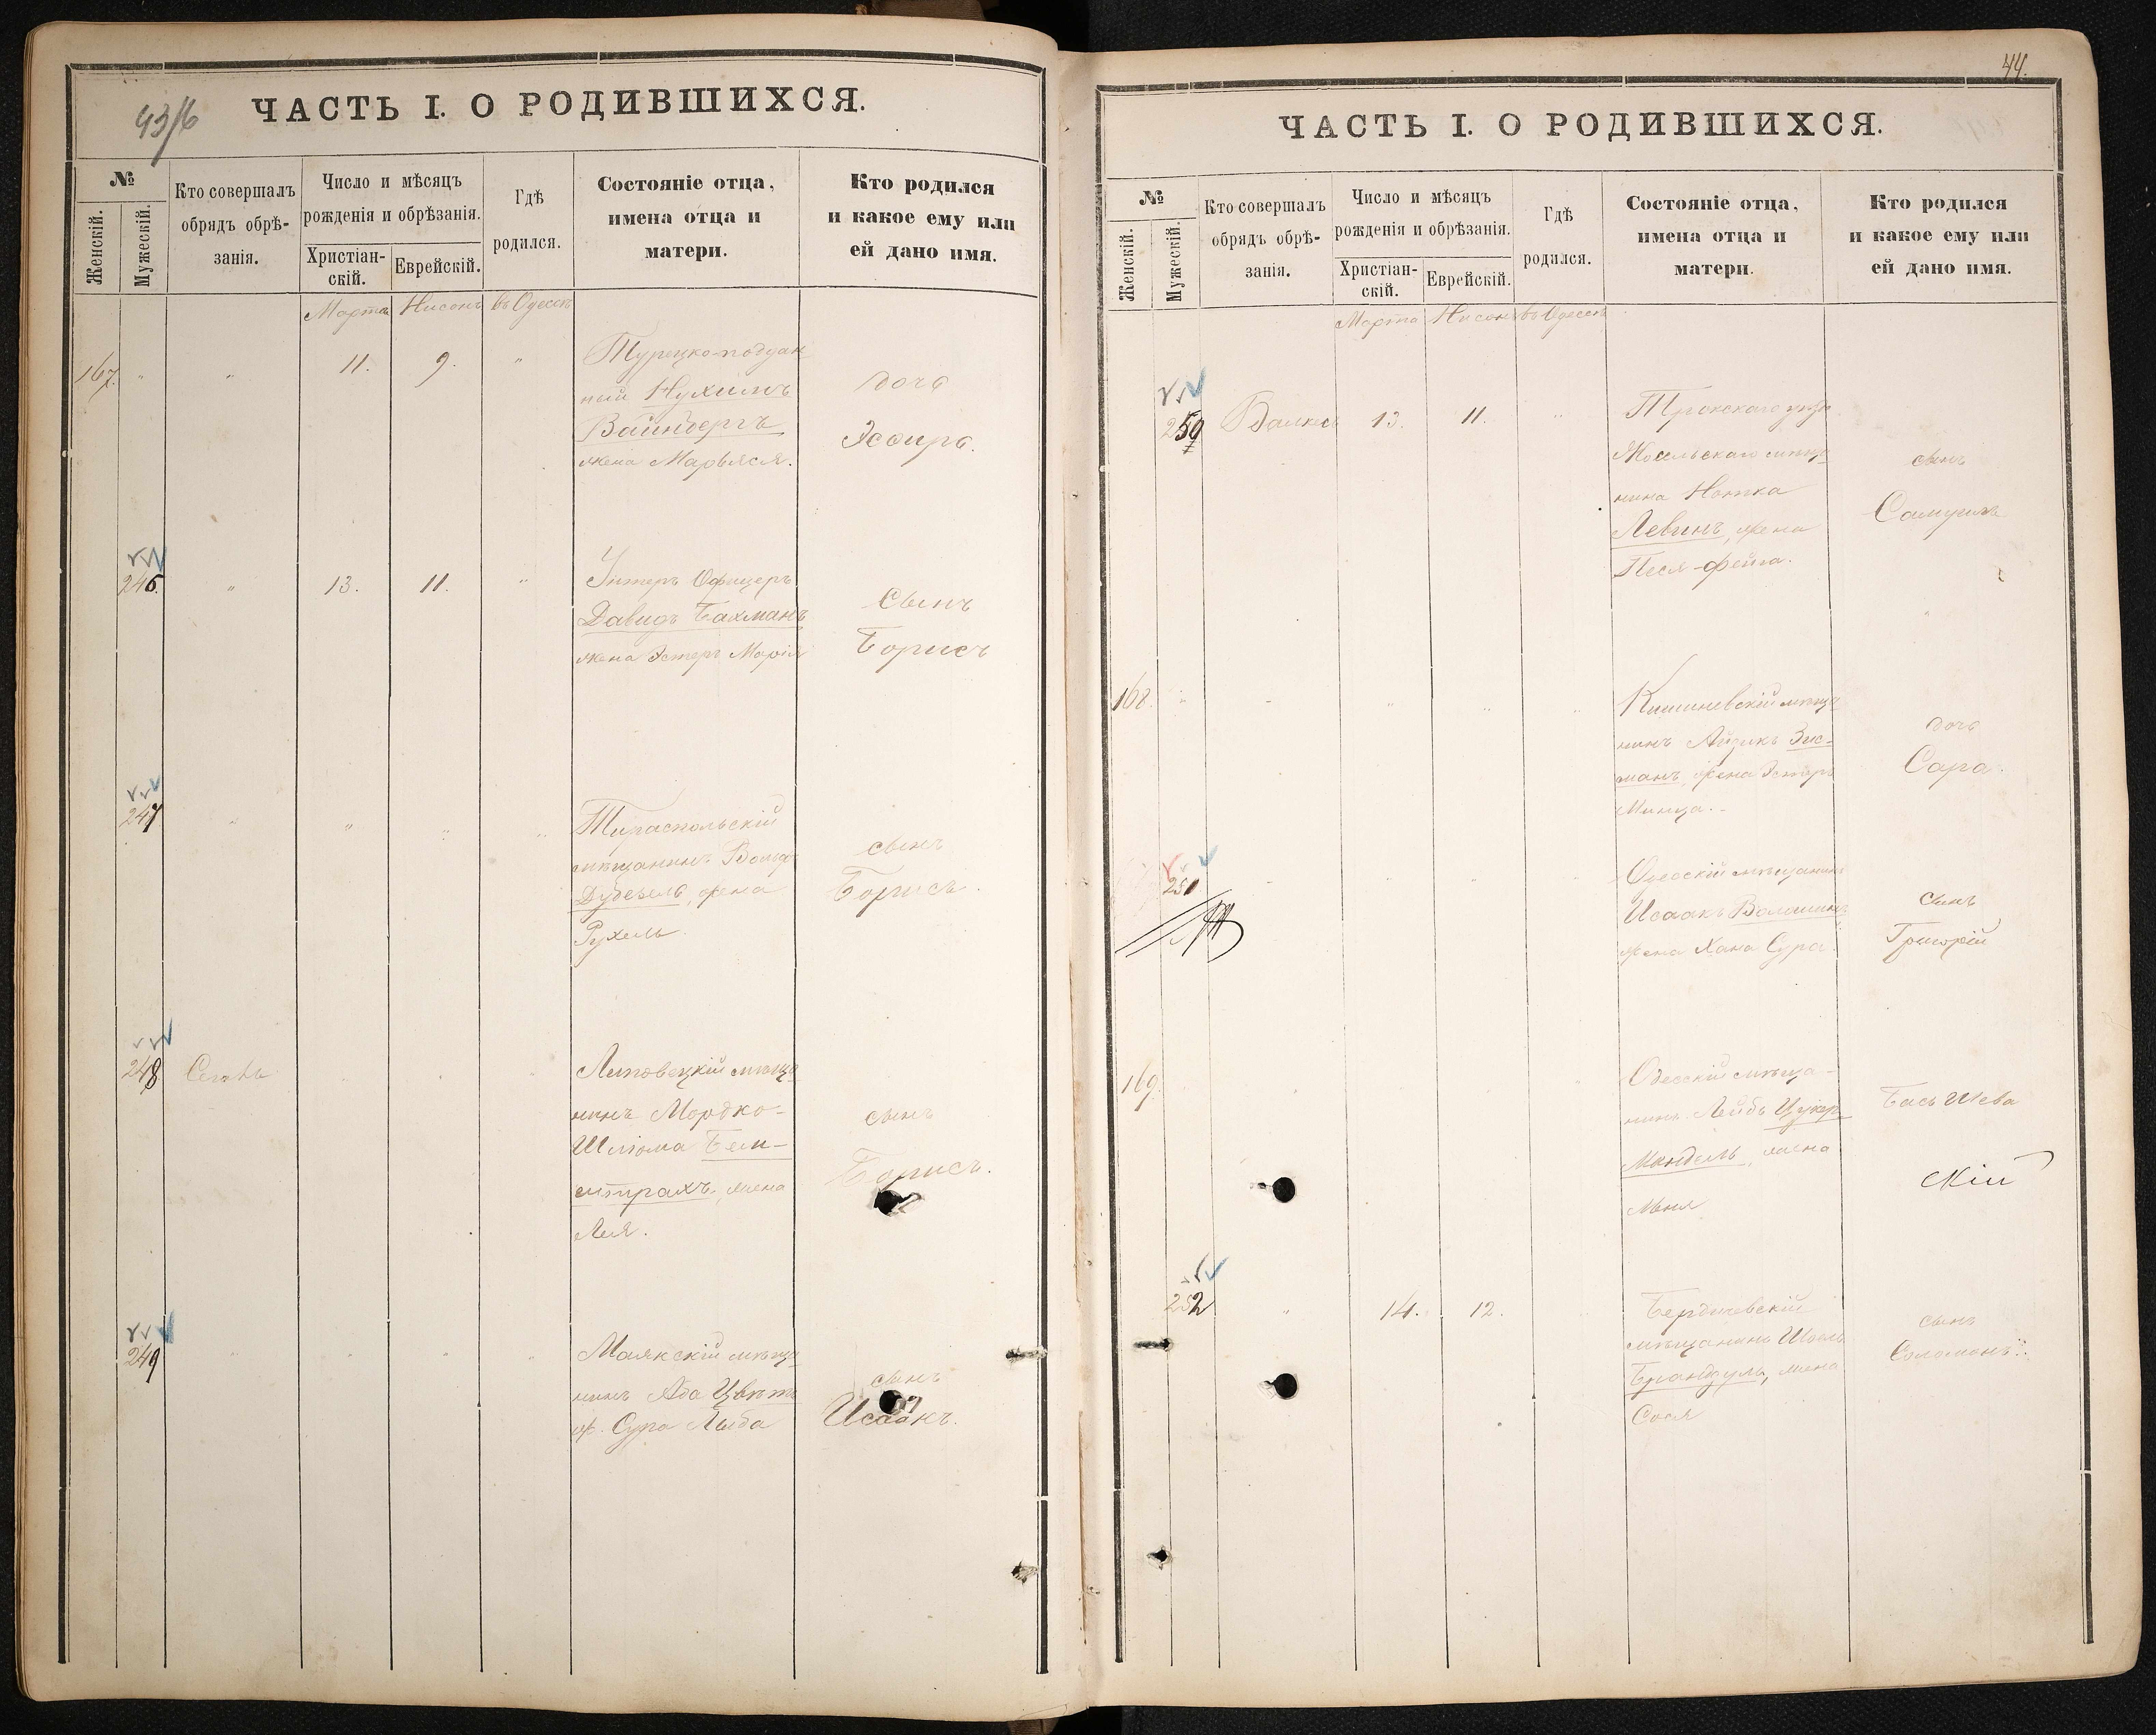 43/б
ЧАСТЬ I. О РОДИВШИХСЯ.
№
Женскій.
Мужескій.
Кто совершалъ
обрядъ обрѣ-
занія.
Число и мѣсяцъ
рожденія и обрѣзанія.
Христіан-
скій.
Еврейскій.
Гдѣ
родился.
Состояніе отца,
имена отца и
матери.
Кто родился
и какое ему или
ей дано имя.
Марта Нисонъ въ Одессѣ
167. " " 11. 9. "
Турецко-поддан
ный Нухимъ
Вайнбергъ
жена Марьяся.
дочь
Эсѳирь.
246. " 13. 11. "
Унтеръ Офицеръ
Давидъ Бахманъ
жена Эстеръ Марія
Сынъ
Борисъ
247 " " " "
Тираспольскій
мѣщанинъ Вольфъ
жена
Рухель
сынъ
Борисъ.
248
Липовецкій мѣща
нинъ Мордко-
Шліома Бем-
страхъ, жена
Лея.
сынъ
Борисъ.
249 " " " "
Маякскій мѣща
нинъ Аба Цвѣтъ
ж. Сура Либа
сынъ
Исаакъ.
44.
ЧАСТЬ I. О РОДИВШИХСЯ.
№
Женскій.
Мужескій.
Кто совершалъ
обрядъ обрѣ-
занія.
Число и мѣсяцъ
рожденія и обрѣзанія.
Христіан-
скій.
Еврейскій.
Гдѣ
родился.
Состояніе отца,
имена отца и
матери.
Кто родился
и какое ему или
ей дано имя.
Марта Нисонъ въ Одессѣ
250 13. 11. "
Трокскаго
мѣща
нина
Левинъ, жена
Песя-Фейга.
сынъ
Самуилъ
168. " " " "
Кишиневскій мѣща
нинъ Айзикъ Зис-
манъ, жена Эстеръ
Минца.
дочь
Сара.
251
Одесскій мѣщанинъ
Исаакъ Волошинъ
жена Хана Сура.
сынъ
Григорій
169.
Одесскій мѣща-
нинъ Лейбъ Цукер
Мандель, жена
Бась Шева
скій
252 " 14. 12.
Бердичевскій
мѣщанинъ
жена
Сося
сынъ
Соломонъ.